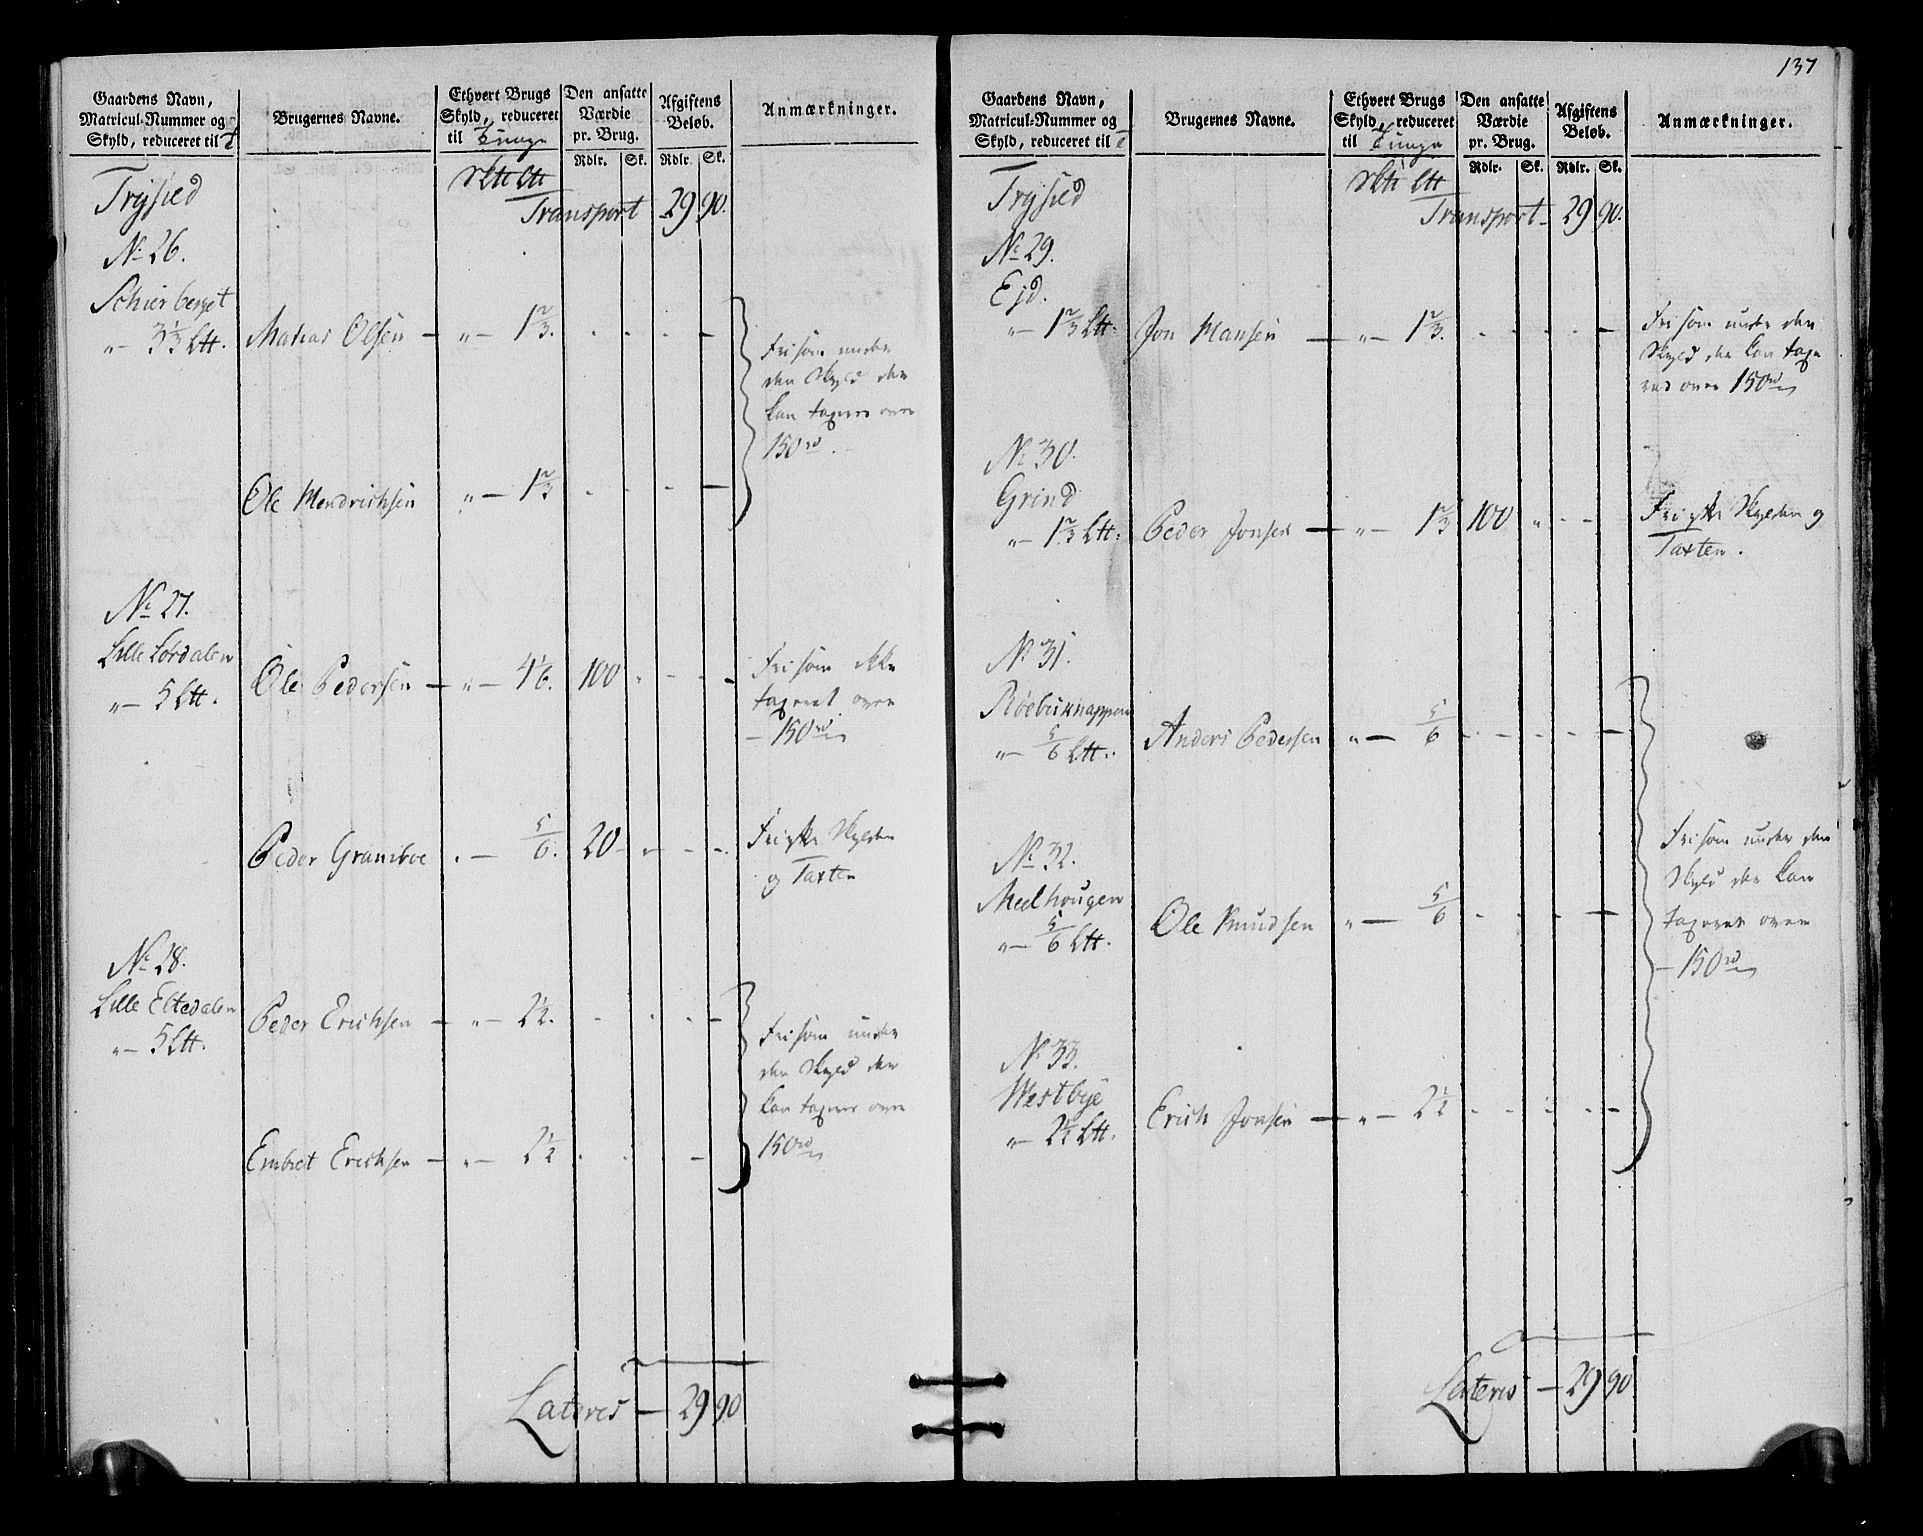 Gaardens Navn,
Matricul-Nummer og
Skyld, reduceret til
Brugernes Navne.
Ethvert Brugs
Skyld, reduceret
til Tunge
Den ansatte
Værdie
pr. Brug.
Rdlr. Sk.
Afgiftens
Beløb.
Rdlr. Sk.
Anmærkninger.
Trysild
Transport 29 90.
No 26.
Schierberget
"— 3⅓ Ltt. Matias Olsen — "— 1⅔.
Fri som under
den Skyld der
kan taxeres over
150 rd.
Ole Hendrichsen "— 1⅔
No 27.
Lille Lørdalen
"— 5 Ltt. Ole Pedersen — "— 4⅙. 100
Fri som ikke
taxeret over
— 150 rd
Peder Gramboe — ⅚. 20
Fri efter Skylden
og Taxten
No 28.
Lille Eltedalen
"— 5 Ltt. Peder Erichsen — "— 2½.
Fri som under
den Skyld der
kan taxeres over
150 rd
Embret Erichsen — "— 2½
Lateres — 29 90
137
Gaardens Navn,
Matricul-Nummer og
Skyld, reduceret til
Brugernes Navne.
Ethvert Brugs
Skyld, reduceret
til Tunge
Den ansatte
Værdie
pr. Brug.
Rdlr. Sk.
Afgiftens
Beløb.
Rdlr. Sk.
Anmærkninger.
Trysild
Transport 29 90.
No 29.
Ejd.
"— 1⅔ Ltt. Jon Hansen — "— 1⅔.
Fri som under den
Skyld der kan taxe
res over 150 rd
No 30.
Grind
"— 1⅔ Ltt. Peder Jonsen — "— 1⅔ 100
Fri efter Skylden og
Taxten.
No 31.
Røebuknappen
"— ⅚ Ltt. Anders Pedersen "— ⅚
No 32.
Meelhougen
"— ⅚ Ltt. Ole Knudsen "— ⅚
Fri som under den
Skyld der kan
taxeret over
— 150 rd
No 33.
Westbye
"— 2½ Ltt. Erich Jonsen — "— 2½
Lateres — 29 90